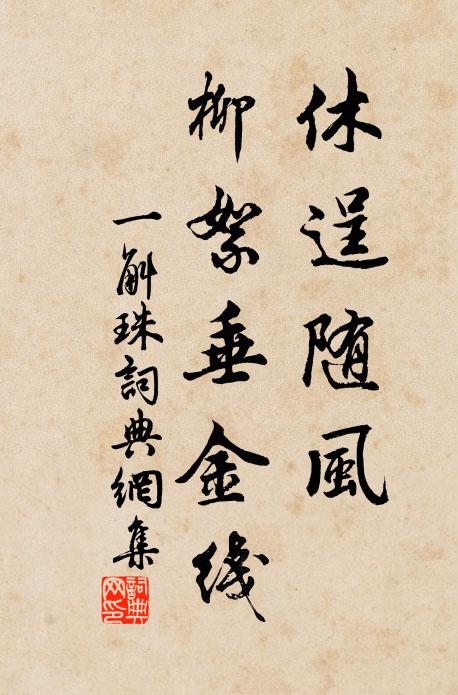 休逞随風
柳絮垂金綫
一斛珠詞典網集
詞典
网